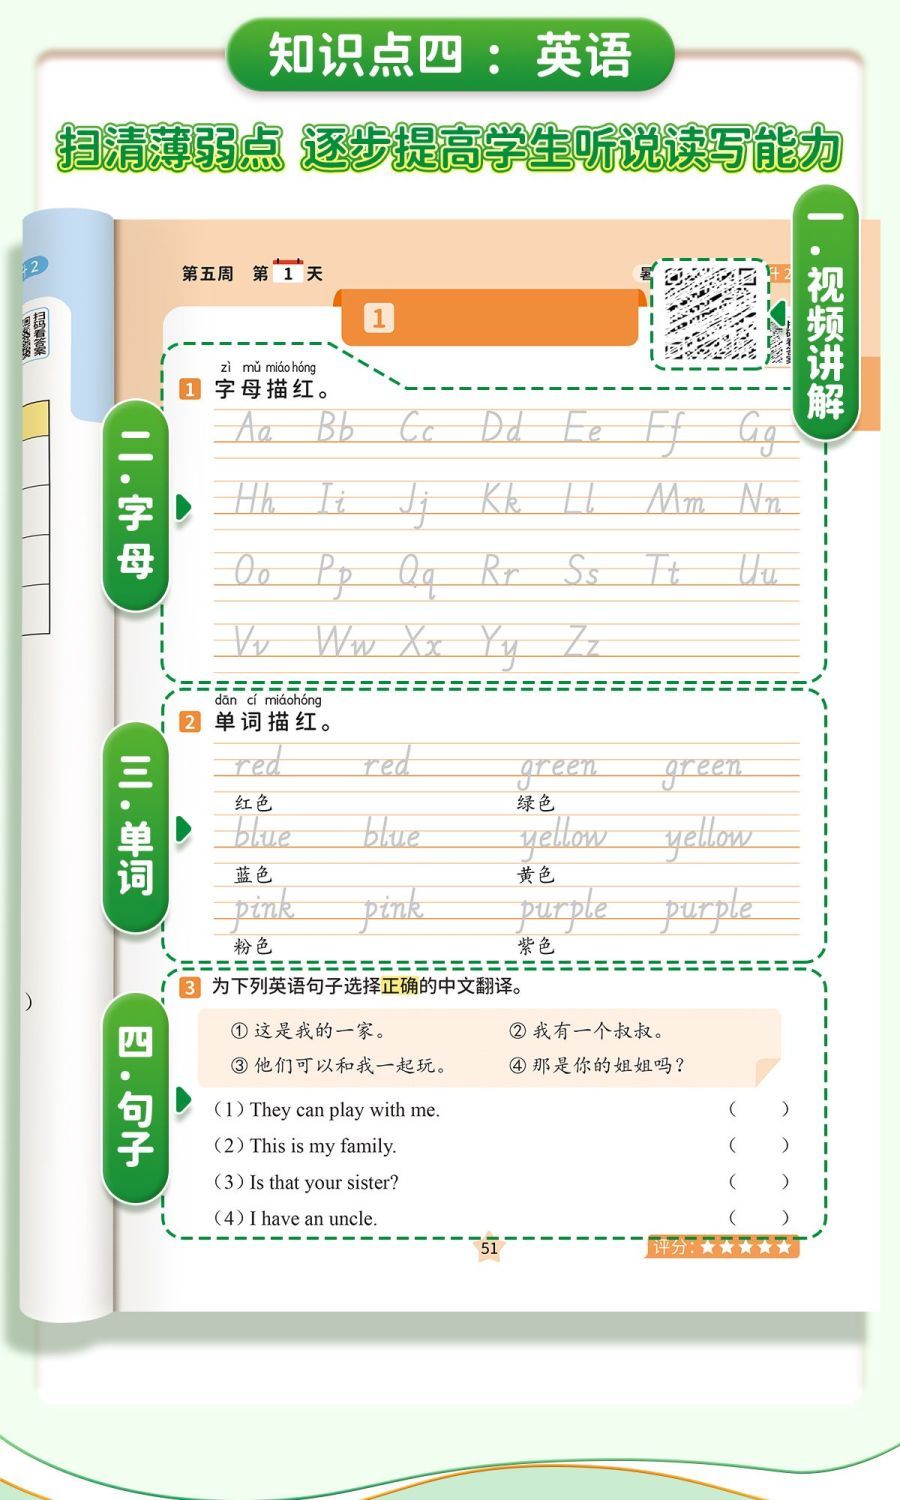 知识点四：英语
扫清薄弱点 逐步提高学生听说读写能力
一·视频讲解
升2
扫码看答案
第五周 第1天
暑
升2
1
二·字母
zì mǔ miáo hóng
1 字母描红。
Aa Bb Cc Dd Ee Ff Gg
Hh Ii Jj Kk Ll Mm Nn
Oo Pp Qq Rr Ss Tt Uu
Vv Ww Xx Yy Zz
三·单词
dān cí miáohóng
2 单词描红。
red red green green
红色 绿色
blue blue yellow yellow
蓝色 黄色
pink pink purple purple
粉色 紫色
四·句子
3 为下列英语句子选择正确的中文翻译。
① 这是我的一家。 ② 我有一个叔叔。
③ 他们可以和我一起玩。 ④ 那是你的姐姐吗？
（1）They can play with me. （ ）
（2）This is my family. （ ）
（3）Is that your sister? （ ）
（4）I have an uncle. （ ）
）
51
评分：★★★★★